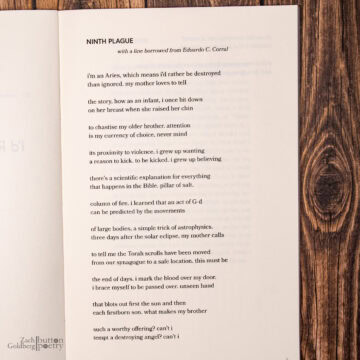 NINTH PLAGUE
with a line borrowed from Eduardo C. Corral
i'm an Aries, which means i'd rather be destroyed
than ignored. my mother loves to tell
the story, how as an infant, i once bit down
on her breast when she raised her chin
to chastise my older brother. attention
is my currency of choice, never mind
its proximity to violence. i grew up wanting
a reason to kick. to be kicked. i grew up believing
there's a scientific explanation for everything
that happens in the Bible. pillar of salt.
column of fire. i learned that an act of G-d
can be predicted by the movements
of large bodies. a simple trick of astrophysics.
three days after the solar eclipse, my mother calls
to tell me the Torah scrolls have been moved
from our synagogue to a safe location. this must be
the end of days. i mark the blood over my door.
i brace myself to be passed over. unseen hand
that blots out first the sun and then
each firstborn son. what makes my brother
such a worthy offering? can't i
tempt a destroying angel? can't i
Zach Goldberg
button poetry